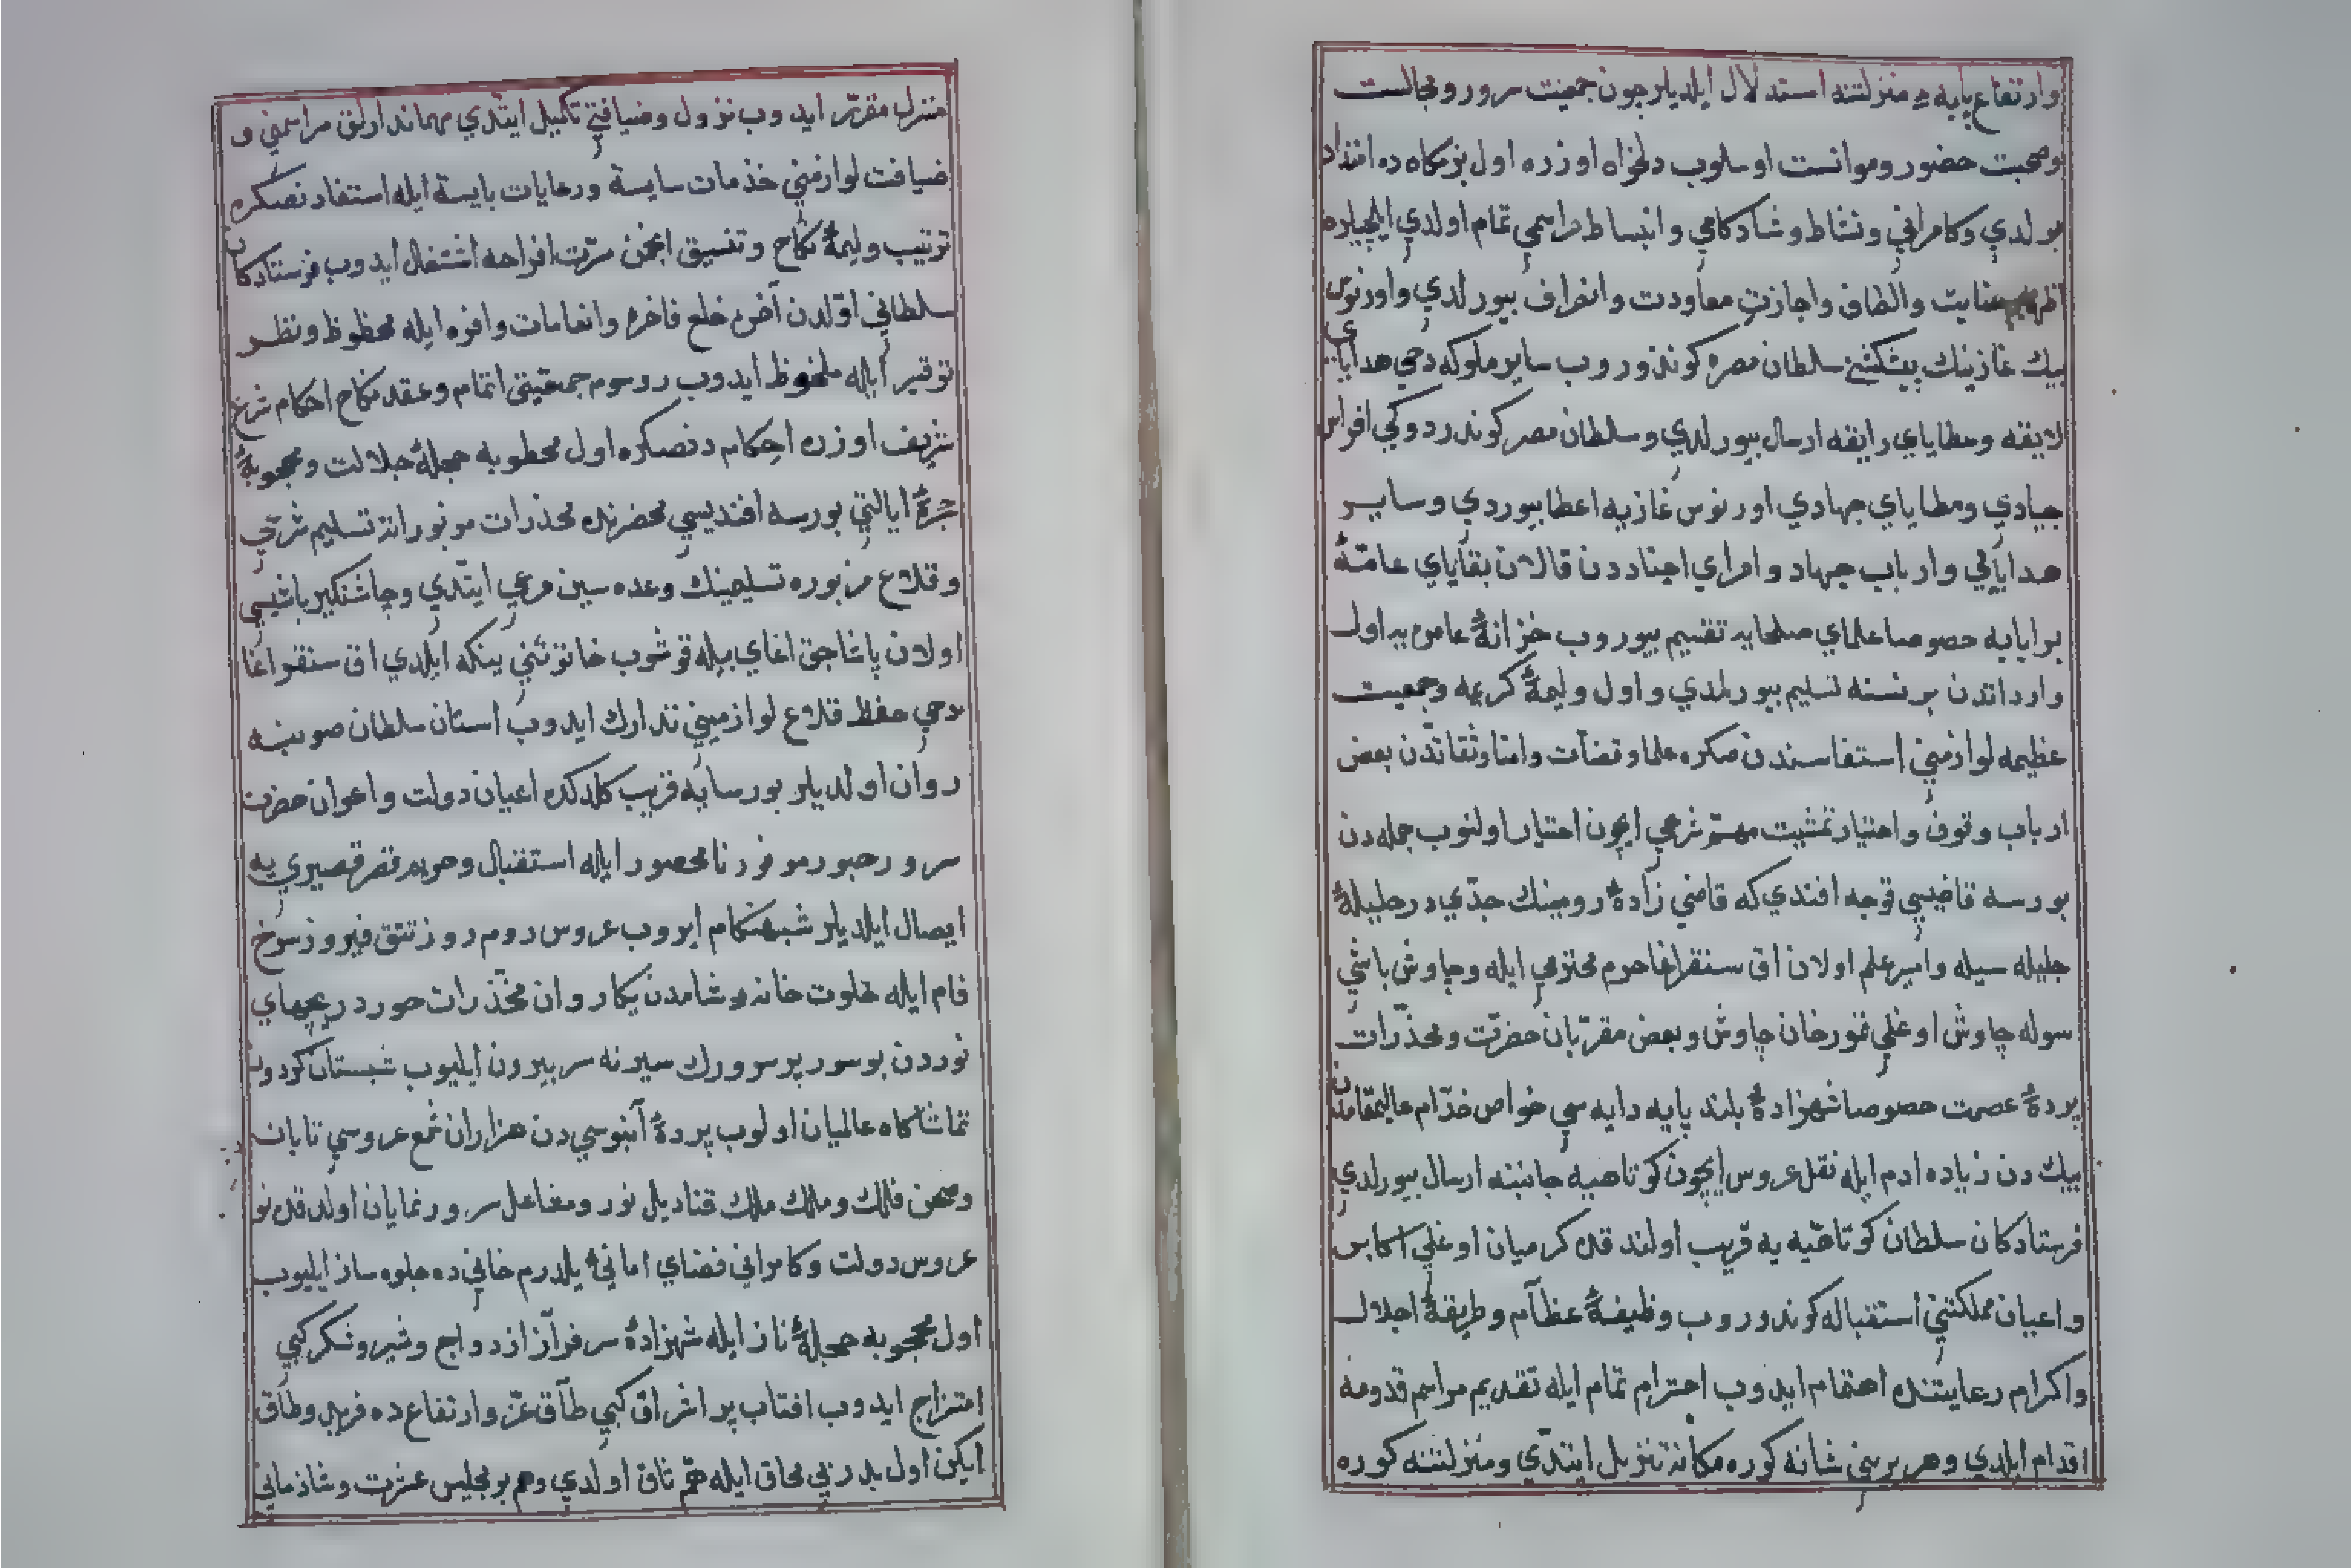 وارتفاع پایه منزلتنه استدلال ایلدیلر چون جمعیت سرور ومجالست
وصحبت حضور وموانست اوسلوب دلخواه اوزره اول بزمکاه ده امتداد
بولدی وکامرانی ونشاط وشادکامی وانبساط مراسمی تمام اولدی ایلچیلره
عنایت والطاف واجازت معاودت وانصراف بیورلدی واورنوس
بیك غازینك پیشکشی سلطان مصره کوندوروب سایر ملوکه دخی هدایای
لایقه وعطایای رایقه ارسال بیورلدی وسلطان مصر کوندردوکی افراس
جیادی ومطایای جهادی اورنوس غازیه اعطا بیوردی وسایر
هدایایی وارباب جهاد وامرای اجناددن قالان بقایای عامهٔ
برایایه خصوصا علمای صلحایه تقسیم بیوروب خزانهٔ عامره یه اول
وارداتدن برنسنه تسلیم بیورلمدی واول ولیمهٔ کریمه وجمعیت
عظیمه لوازمنی استفاسندن صکره علما وقضات وامنا وثقاتدن بعض
ارباب وقوف واختیار تمشیت مهم شرعی ایچون اختیار اولنوب جمله دن
بورسه قاضیسی قوجه افندی که قاضی زادهٔ رومینك جدی در حلیلهٔ
جلیله سیله وامیرعلم اولان اق سنقر اغا حرم محترمی ایله وچاوش باشی
سوله چاوش اوغلی تمورخان چاوش وبعض مقربان حضرت ومخدرات
پردهٔ عصمت خصوصا شهزادهٔ بلند پایه دایه سی خواص خدام عالیمقامدن
بیك دن زیاده ادم ایله نقل عروس ایچون کوتاهیه جانبنه ارسال بیورلدی
فرستادکان سلطان کوتاهیه یه قریب اولندقده کرمیان اوغلی اکابر
واعیان مملکتنی استقباله کوندوروب وظیفهٔ عظام وطریقهٔ اجلال
واکرام رعایتنده اهتمام ایدوب احترام تمام ایله تقدیم مراسم قدومه
اقدام ایلدی وهر برینی شانه کوره مکانه تنزیل ایتدی ومنزلتنه کوره
منزل مقرر ایدوب نزول وضیافتی تکمیل ایتدی مهماندارلق مراسمنی و
ضیافت لوازمنی خدمات سایسة ورعایات بایسة ایله استفادنصکره
ترتیب ولیمهٔ نکاح وتنسیق انجمن مسرت افراحه اشتغال ایدوب فرستادکان
سلطانی اولدن آخره خلع فاخره وانعامات وافره ایله محظوظ ونظر
توقیر ایله ملحوظ ایدوب رسوم جمعیتی اتمام وعقد نکاح احکام شرع
شریف اوزره احکام دنصکره اول مخطوبه حجلهٔ جلالت ومحجوبهٔ
حجرهٔ ایالتی بورسه افندیسی محضرنده مخدرات تسلیم شرعی
وقلاع مزبوره تسلیمینك وعده سین مرعی ایتدی وچاشنکیر باشیسی
اولان پاشاجق اغای بیله قوشوب خاتوننی ینکه ایلدی اق سنقر اغا
دخی حفظ قلاع لوازمینی تدارك ایدوب استان سلطان صوبنه
روان اولدیلر بورسایه قریب کلدکده اعیان دولت واعوان حضرت
سرور حبور موفور نامحصور ایله استقبال وحرم قصر قصیری یه
ایصال ایلدیلر شبهنکام ایروب عروس دوم روز تتق فیروز سرخ
فام ایله خلوت خانه شامدن روان مخدرات حور دریچهای
نوردن بوسور پرسرورك سیرنه سر بیرون ایلیوب شبستان کردون
تماشاکاه عالمیان اولوب پردهٔ آبنوسی دن هزاران شمع عروسی تابان
وصحن فلك وملك ملك قنادیل نور ومشاعل سرور نمایان اولدقده نو
عروس دولت وکامرانی فضای امانیٔ یلدرم خانی ده جلوه ساز ایلیوب
اول محجوبه حجلهٔ ناز ایله شهزادهٔ سرفراز ازدواج وشیر وشکر کبی
امتزاج ایدوب افتاب پر اشراق کبی طاق عز وارتفاع ده فرید وطاق
ایکن اول بدر بی محاق ایله هم تاق اولدی وهم بومجلس عشرت وشادمانی